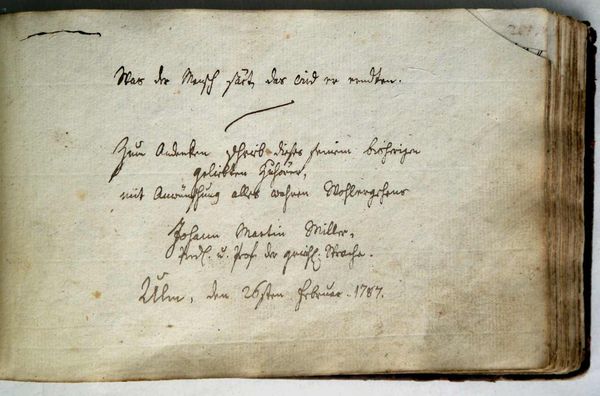 Was der Mensch säet, das wird er erndten.
Zum Andenken schrieb dieses seinem bisherigen
geliebten Zuhörer,
mit Anwünschung alles wahren Wohlergehens
Johann Martin Miller,
Pred. u. Prof. der griech. Sprache.
Ulm, den 26sten Februar. 1787.